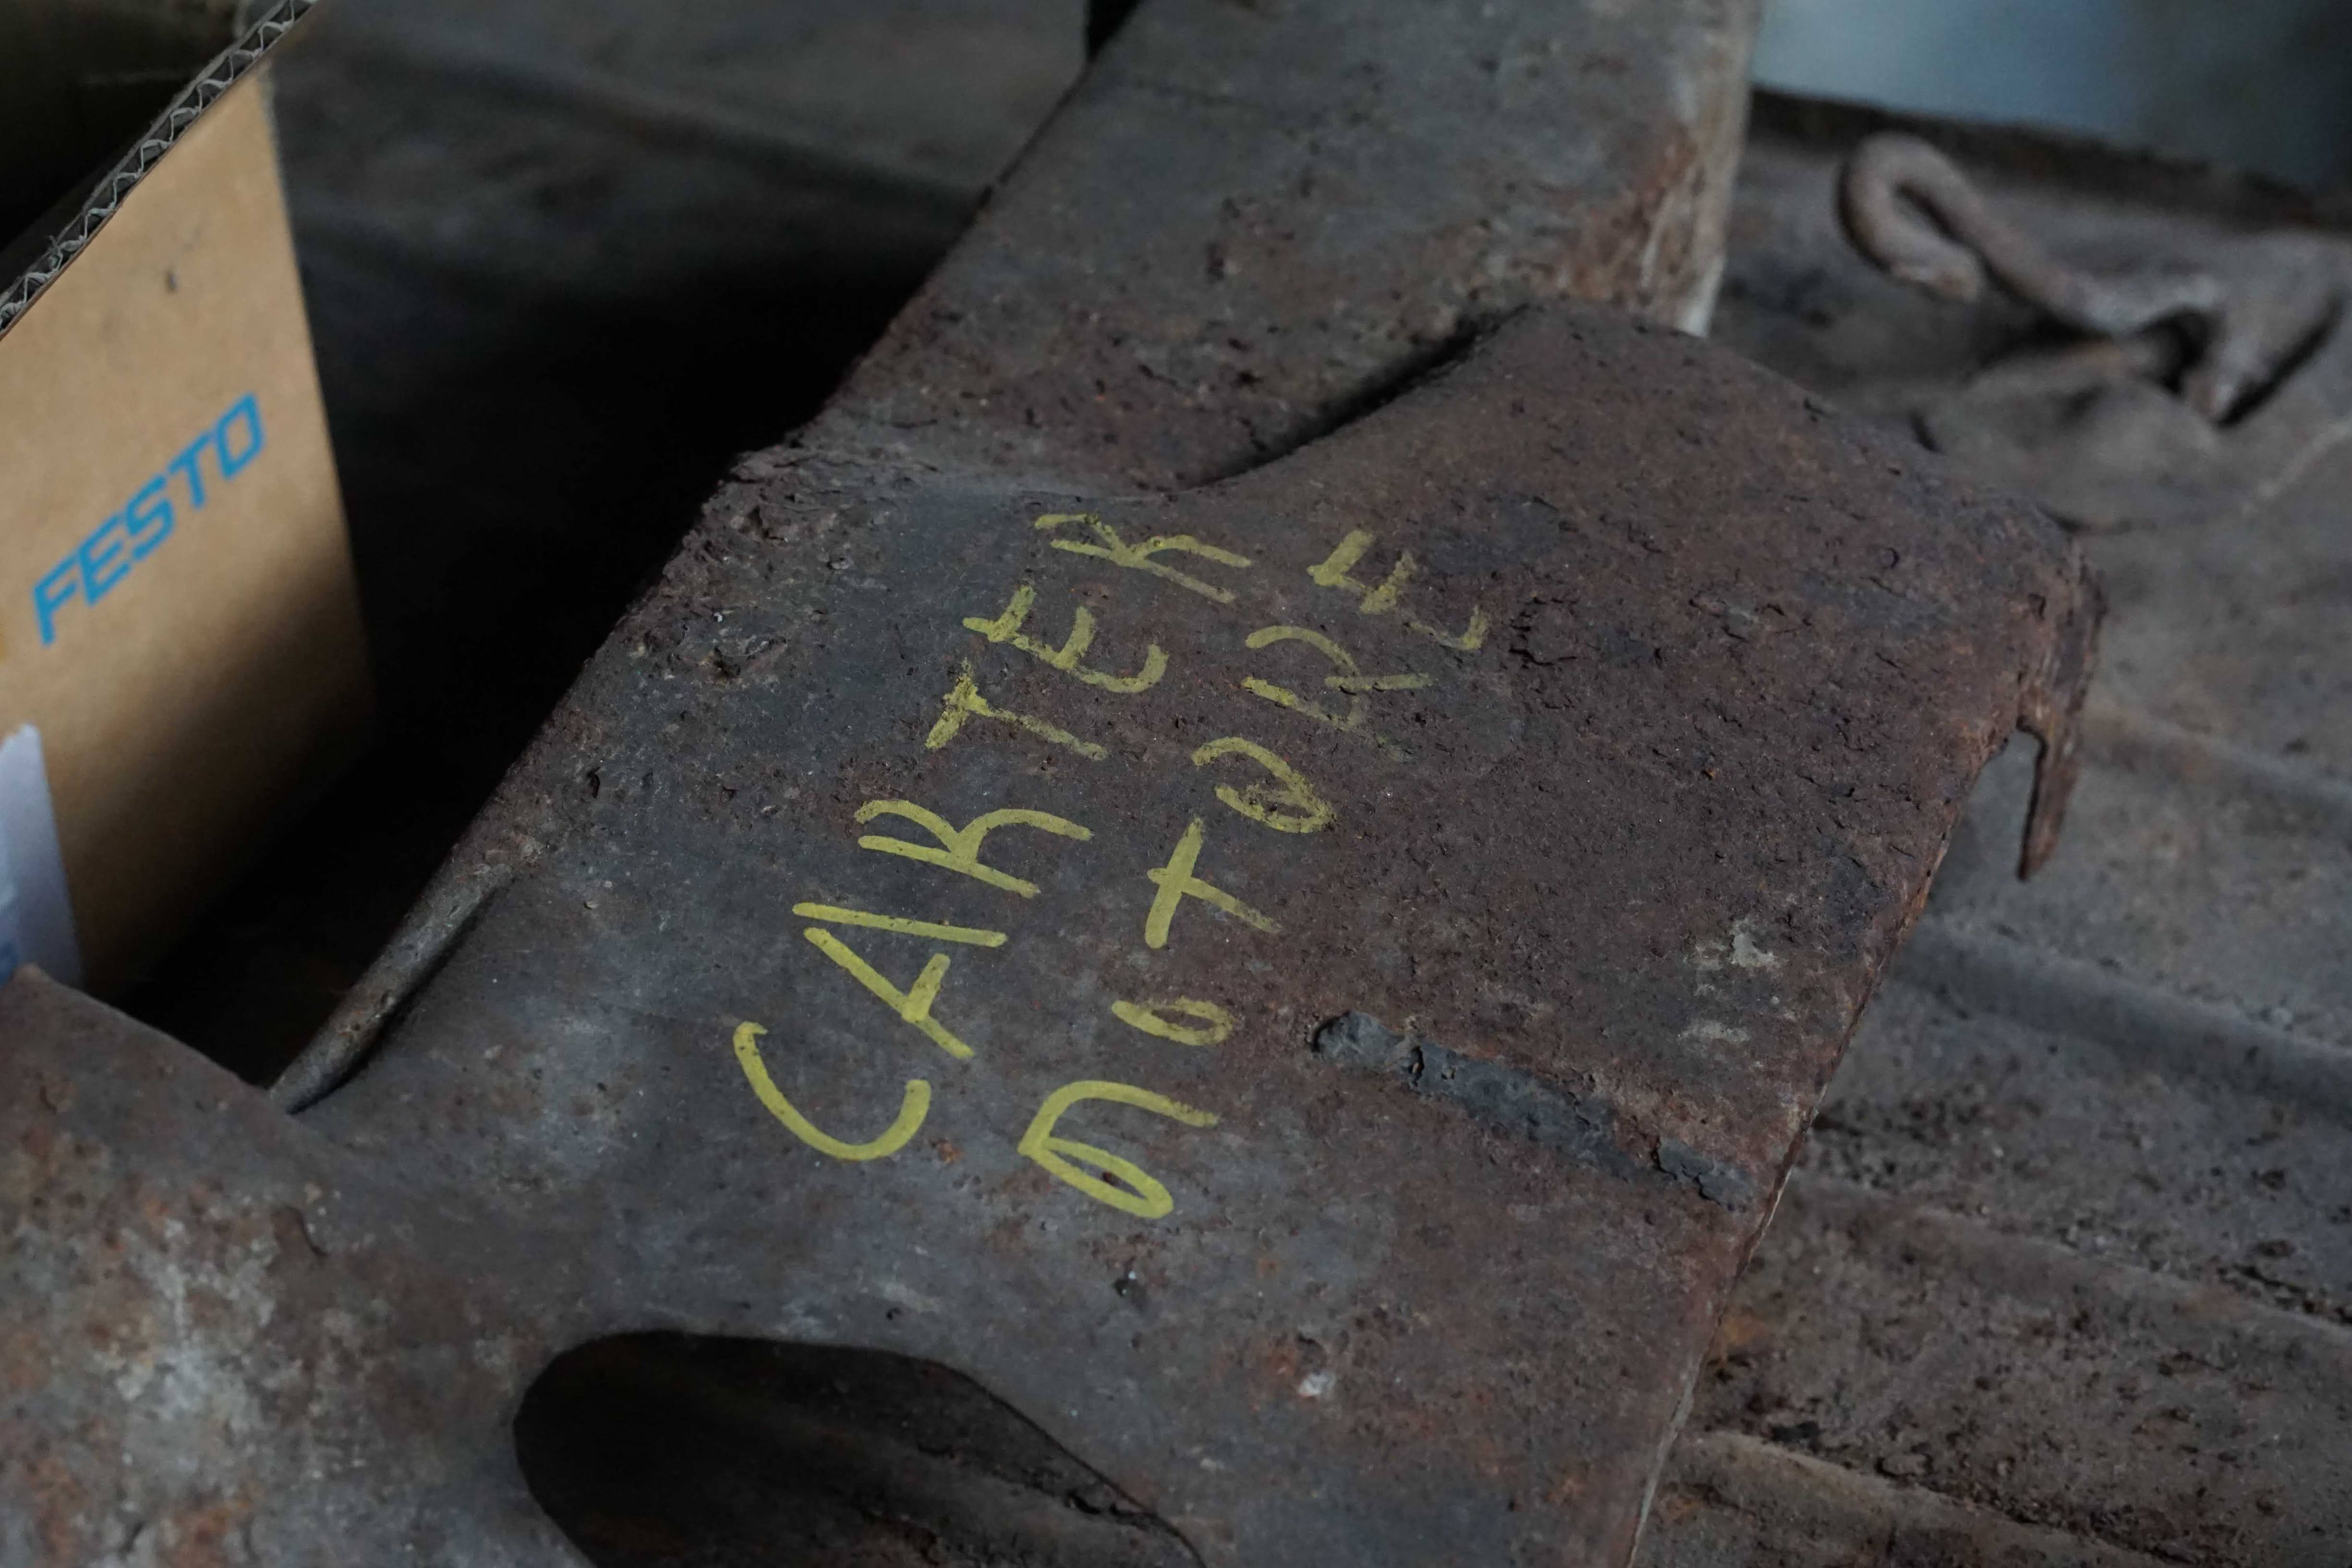 FESTO
CARTER
MOTORE